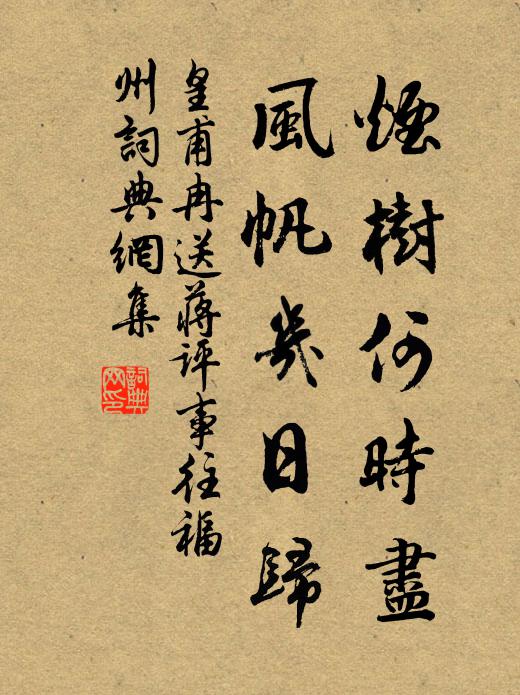 煙樹何時盡
風帆幾日歸
皇甫冉送蔣評事往福
州詞典網集
詞典
网印